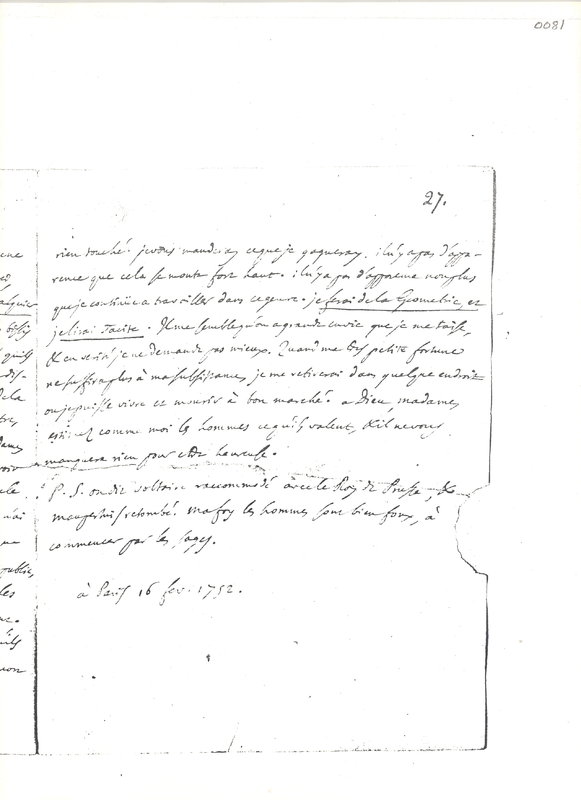 0081
27.
rien touché. je vous manderay ce que je gagneray. il n'y a pas d'appa-
rence que cela se monte fort haut. il n'y a pas d'apparence non plus
que je continue a travailler dans ce genre. je ferai de la Geometrie, et
je lirai Tacite. Il me semble qu'on a grande envie que je me taise,
& en verité je ne demande pas mieux. Quand ma petite fortune
ne suffira plus à ma subsistance, je me retirerai dans quelque endroit
ou je puisse vivre et mourir à bon marché. a Dieu madame,
estimez comme moi les hommes ce qu'ils valent, & il ne vous
manquera rien pour etre heureuse.
P. S. on dit voltaire raccommodé avec le Roy de Prusse, &
maupertuis retombé. ma foy les hommes sont bien foux, à
commencer par les sages.
à Paris 16 fev. 1752.
ene
alquier
qu'ils
dis-
de la
tres,
dames
voir
cle
n'ai
me
public,
les
ne.
qu'ils